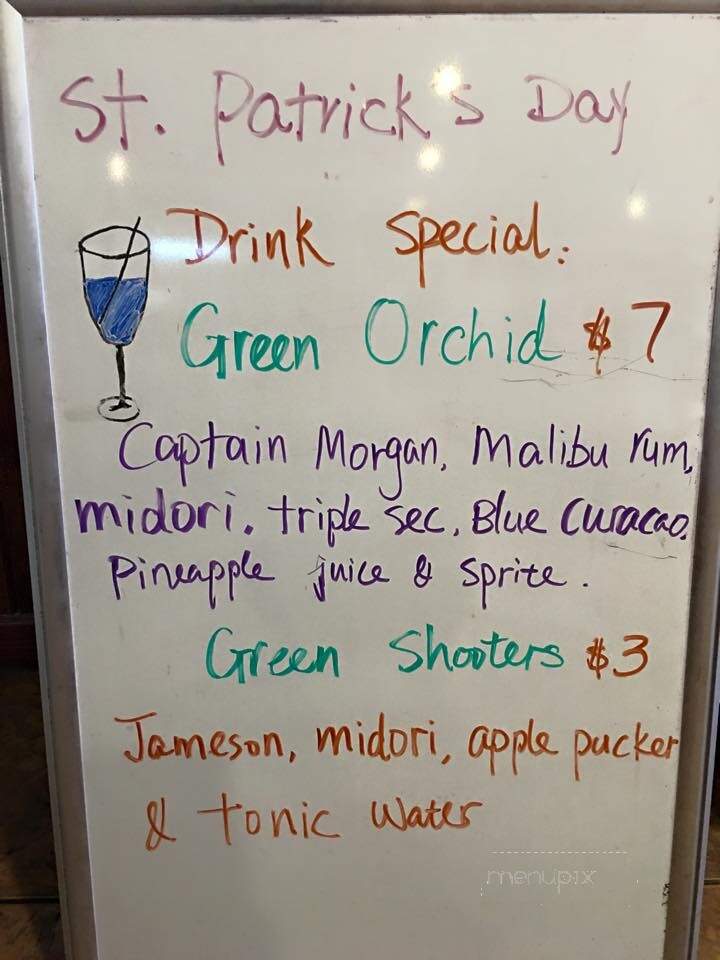 St. Patrick's Day
Drink Special:
Green Orchid $7
Captain Morgan, Malibu rum,
midori, triple sec, Blue Curacao,
Pineapple juice & Sprite.
Green Shooters $3
Jameson, midori, apple pucker
& tonic water
menupix